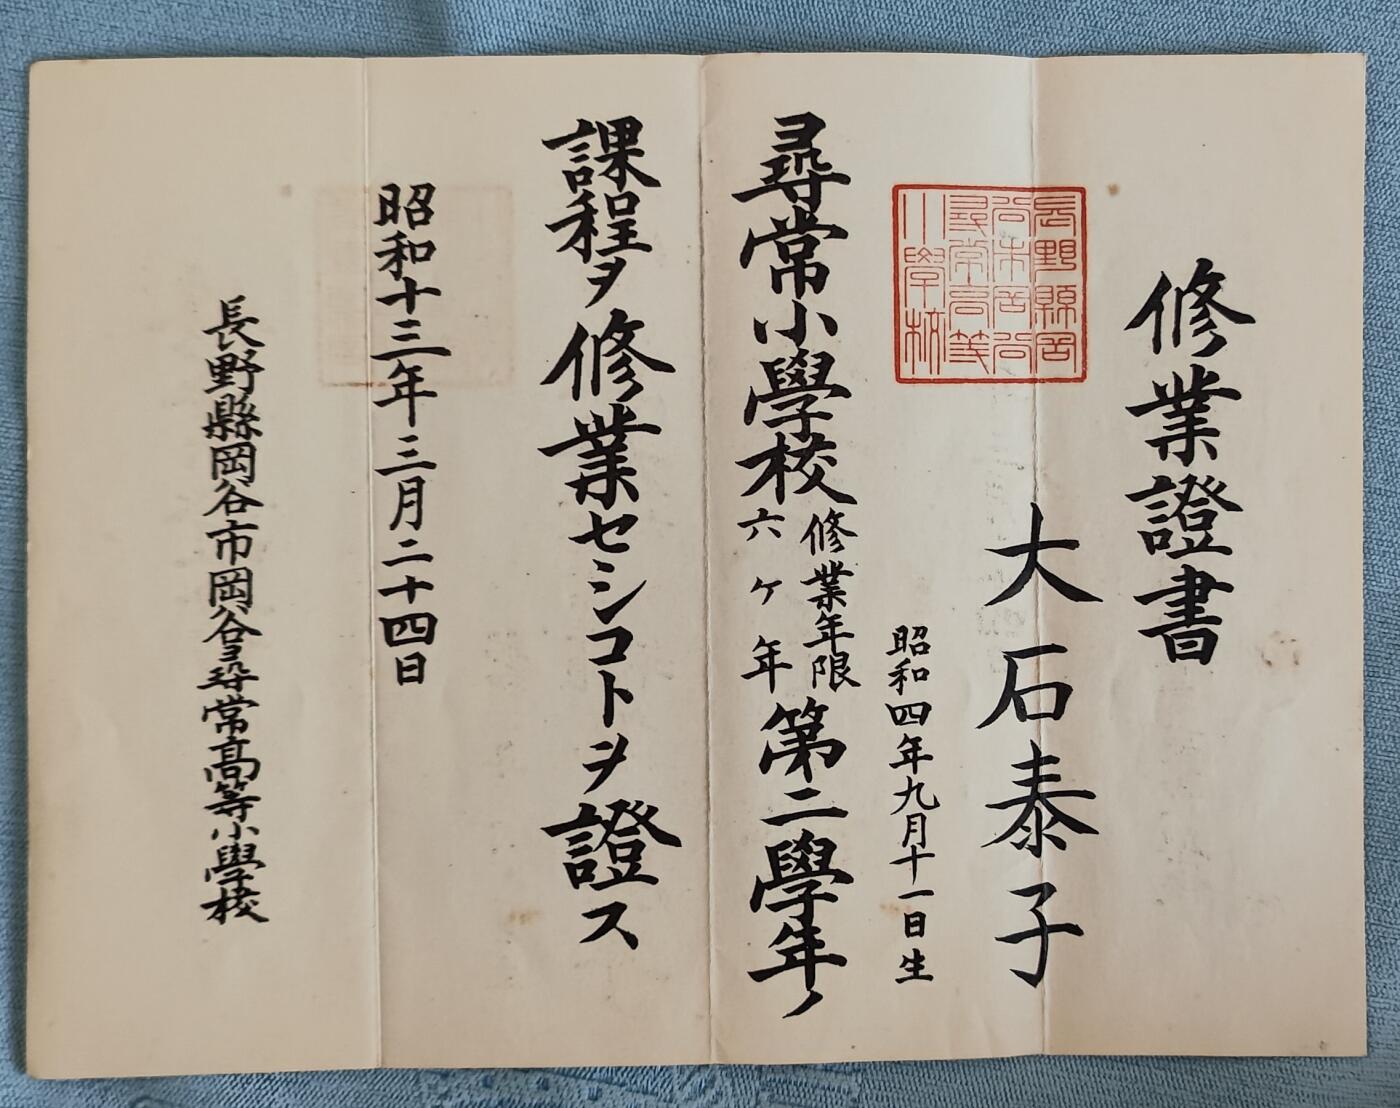 修業證書
大石泰子
昭和四年九月十一日生
長野縣岡
谷市岡谷
尋常高等
小學校
尋常小學校修業年限六ヶ年第二學年ノ
課程ヲ修業セシコトヲ證ス
昭和十三年三月二十四日
長野縣岡谷市岡谷尋常高等小學校